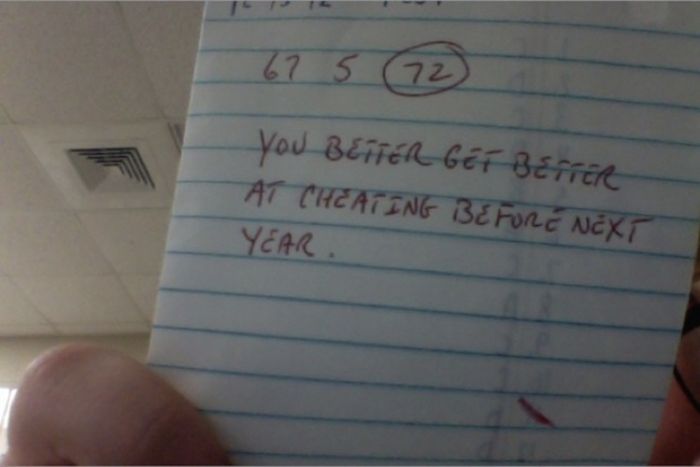 67 5 72
YOU BETTER GET BETTER
AT CHEATING BEFORE NEXT
YEAR.